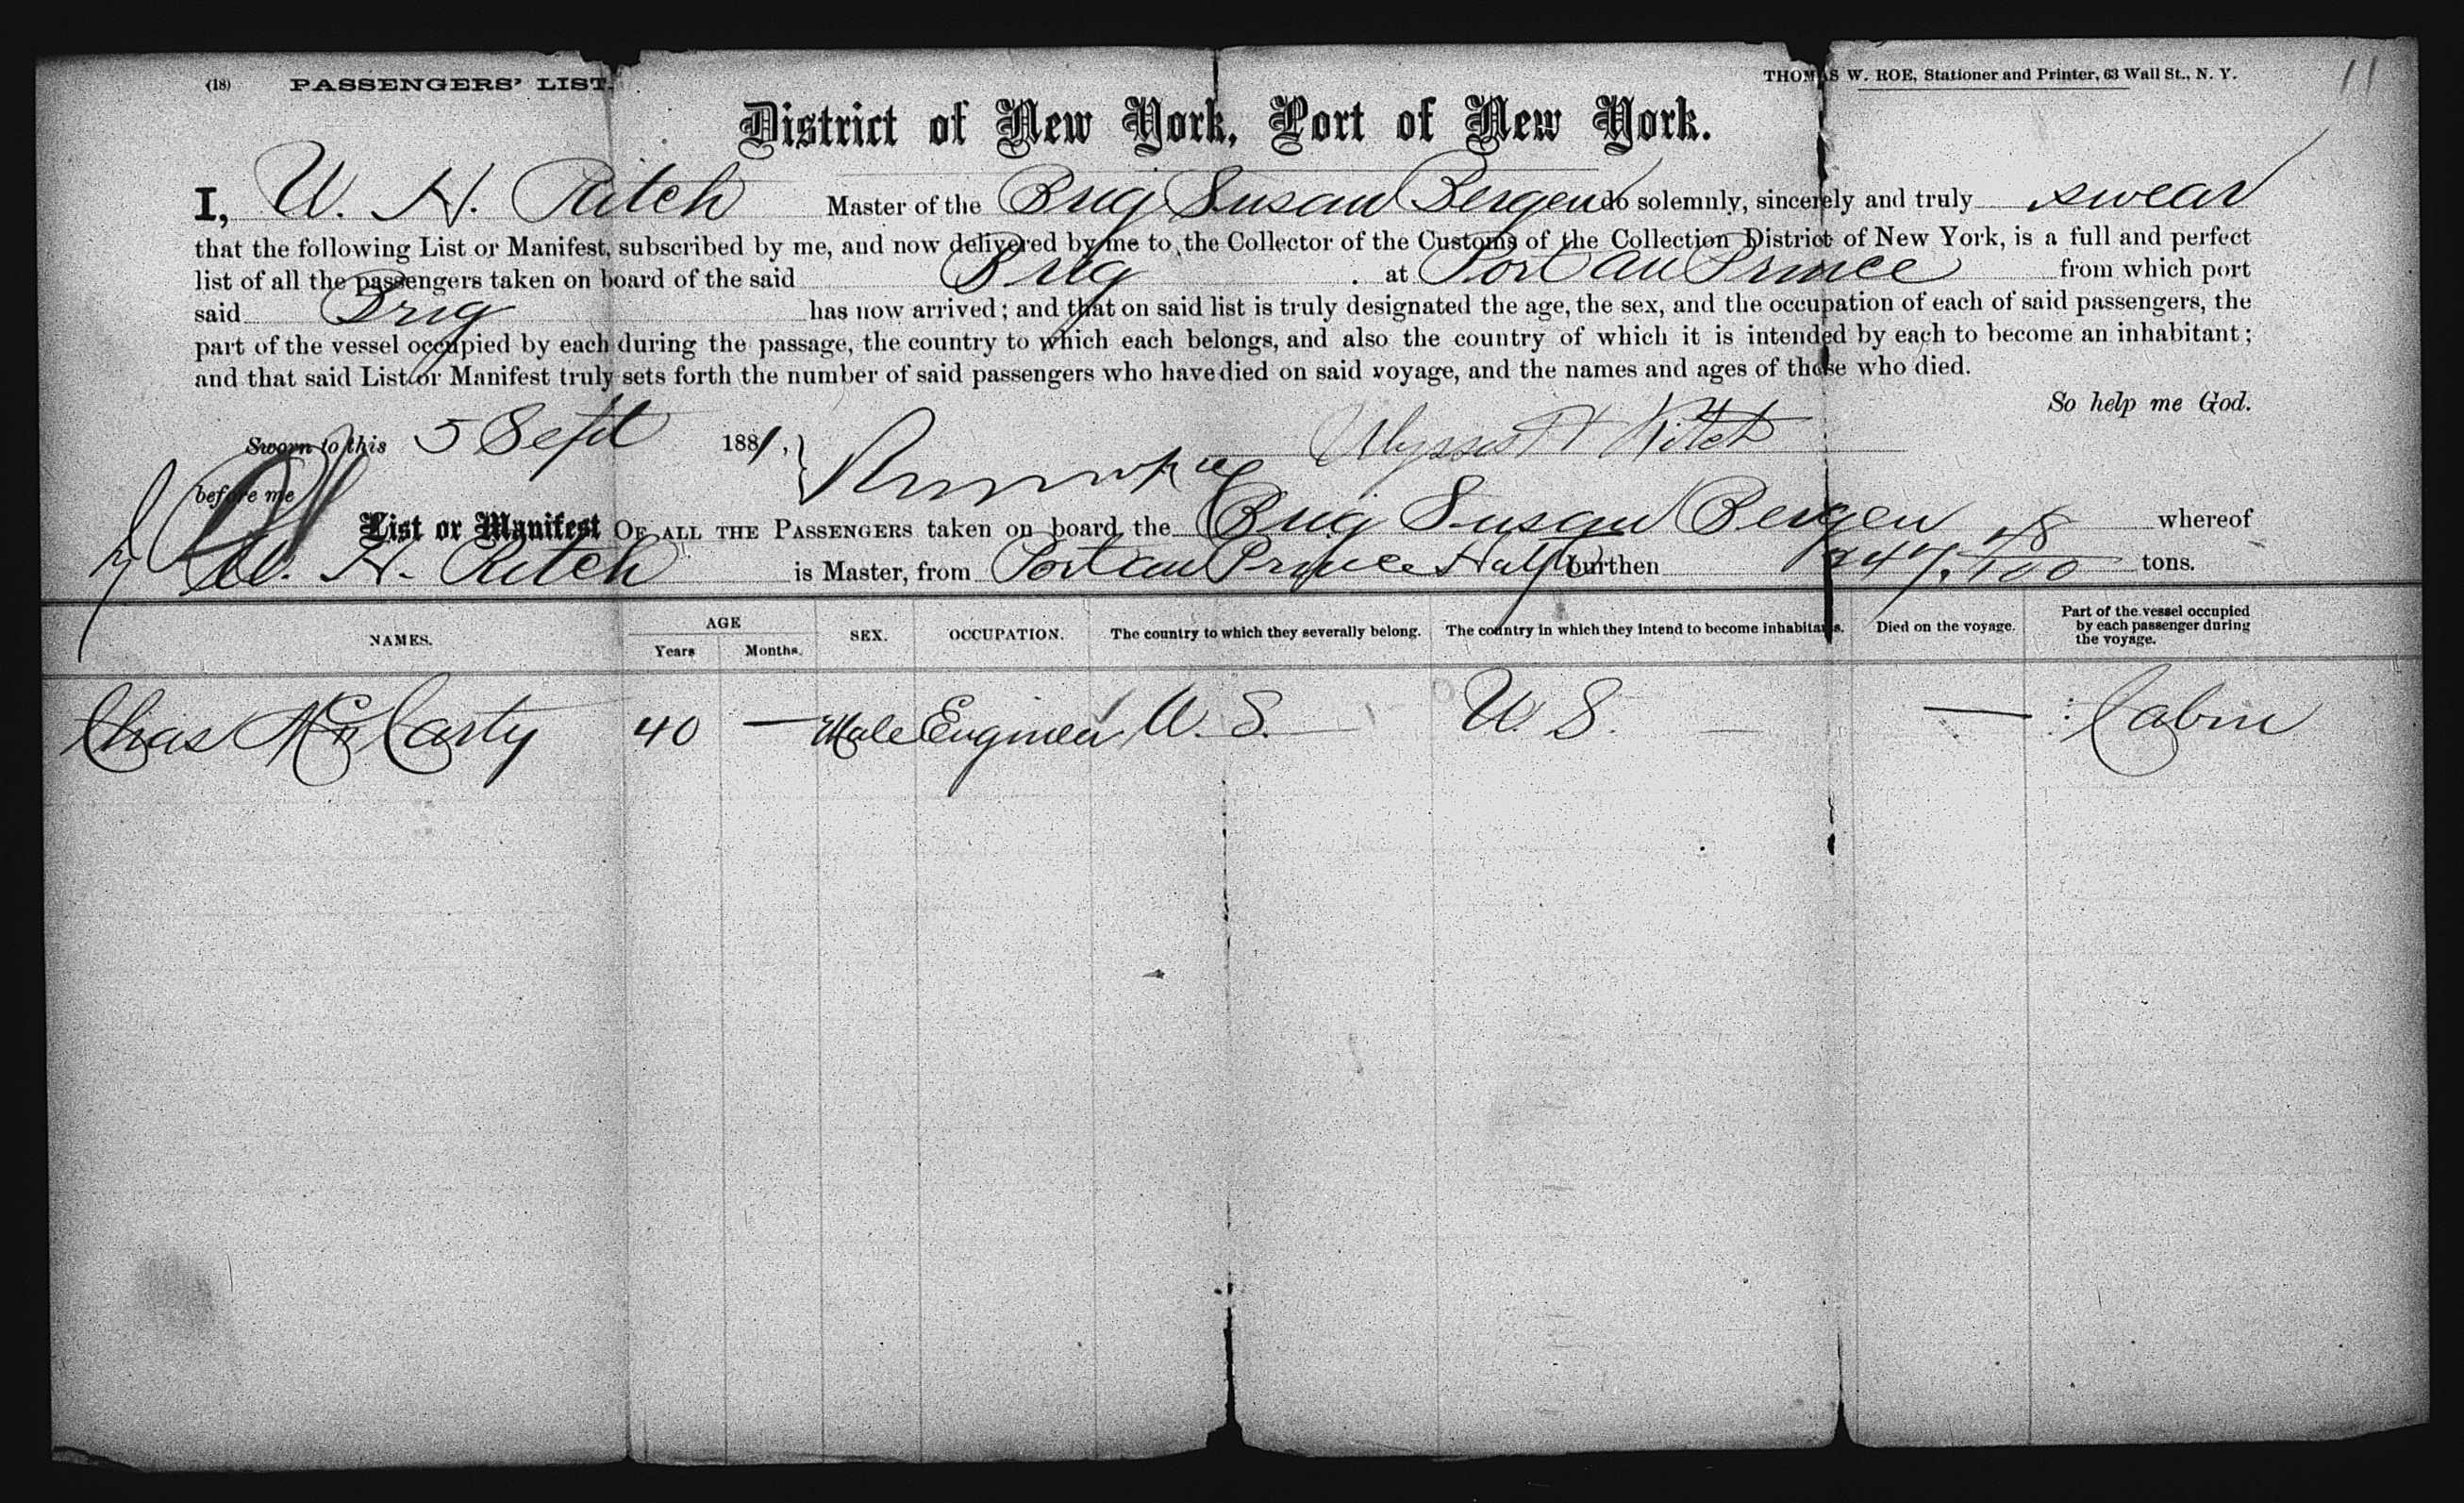 (18) PASSENGERS' LIST. THOMAS W. ROE, Stationer and Printer, 63 Wall St., N. Y. 11
District of New York, Port of New York.
I, U. H. Ritch Master of the Brig Susan Bergen do solemnly, sincerely and truly swear
that the following List or Manifest, subscribed by me, and now delivered by me to the Collector of the Customs of the Collection District of New York, is a full and perfect
list of all the passengers taken on board of the said Brig at Port au Prince from which port
said Brig has now arrived; and that on said list is truly designated the age, the sex, and the occupation of each of said passengers, the
part of the vessel occupied by each during the passage, the country to which each belongs, and also the country of which it is intended by each to become an inhabitant;
and that said List or Manifest truly sets forth the number of said passengers who have died on said voyage, and the names and ages of those who died.
So help me God.
Sworn to this 5 Sept 1881, Ulysses H Ritch
before me
List or Manifest OF ALL THE PASSENGERS taken on board the Brig Susan Bergen whereof
U. H. Ritch is Master, from Port au Prince Hayti burthen 247. 48/100 tons.
NAMES. AGE Years Months. SEX. OCCUPATION. The country to which they severally belong. The country in which they intend to become inhabitants. Died on the voyage. Part of the vessel occupied by each passenger during the voyage.
Chas McCarty 40 — Male Engineer U. S. U. S. — Cabin